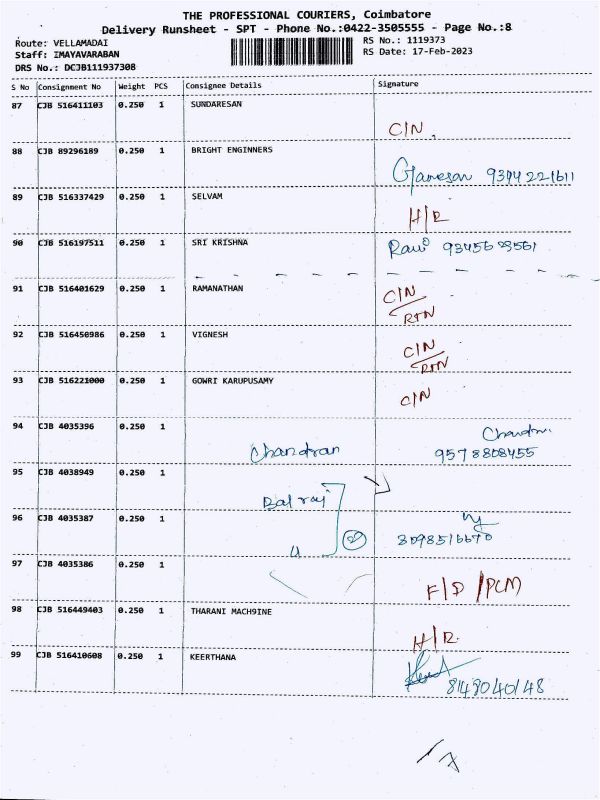 THE PROFESSIONAL COURIERS, Coimbatore
Delivery Runsheet - SPT - Phone No.:0422-3505555 - Page No.:8
Route: VELLAMADAI RS No.: 1119373
Staff: IMAYAVARABAN RS Date: 17-Feb-2023
DRS No.: DCJB111937308
S No Consignment No Weight PCS Consignee Details Signature
87 CJB 516411103 0.250 1 SUNDARESAN
C/N.
88 CJB 89296189 0.250 1 BRIGHT ENGINNERS
Ganesan 9344221611
89 CJB 516337429 0.250 1 SELVAM
H/R
90 CJB 516197511 0.250 1 SRI KRISHNA
Ravi
91 CJB 516401629 0.250 1 RAMANATHAN
C/N
RTN
92 CJB 516450986 0.250 1 VIGNESH
C/N
RTN
93 CJB 516221000 0.250 1 GOWRI KARUPUSAMY
C/N
94 CJB 4035396 0.250 1
Chandran 9578808455
95 CJB 4038949 0.250 1
Balraj
96 CJB 4035387 0.250 1
8098516670
97 CJB 4035386 0.250 1
F/D/PCM
98 CJB 516449403 0.250 1 THARANI MACH9INE
H/R.
99 CJB 516410608 0.250 1 KEERTHANA
8149040148